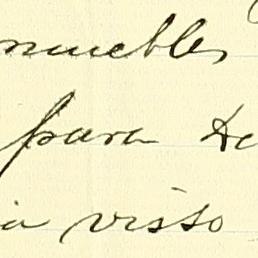 muebles
para de
ia visto